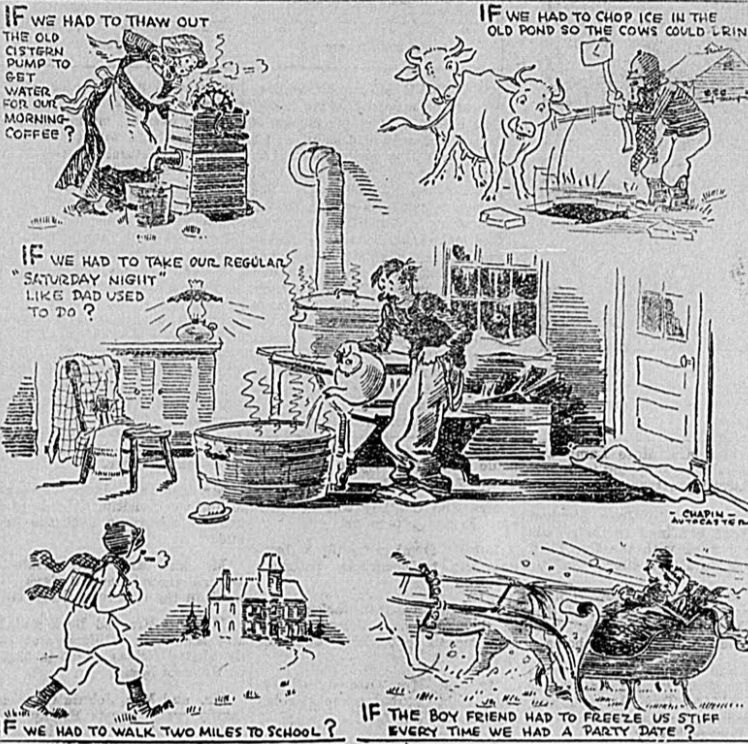 IF WE HAD TO THAW OUT
THE OLD
CISTERN
PUMP TO
GET
WATER
FOR OUR
MORNING
COFFEE?
IF WE HAD TO CHOP ICE IN THE
OLD POND SO THE COWS COULD DRIN
IF WE HAD TO TAKE OUR REGULAR
"SATURDAY NIGHT"
LIKE DAD USED
TO DO?
- CHAPIN -
AUTOCASTER
F WE HAD TO WALK TWO MILES TO SCHOOL?
IF THE BOY FRIEND HAD TO FREEZE US STIFF
EVERY TIME WE HAD A PARTY DATE?